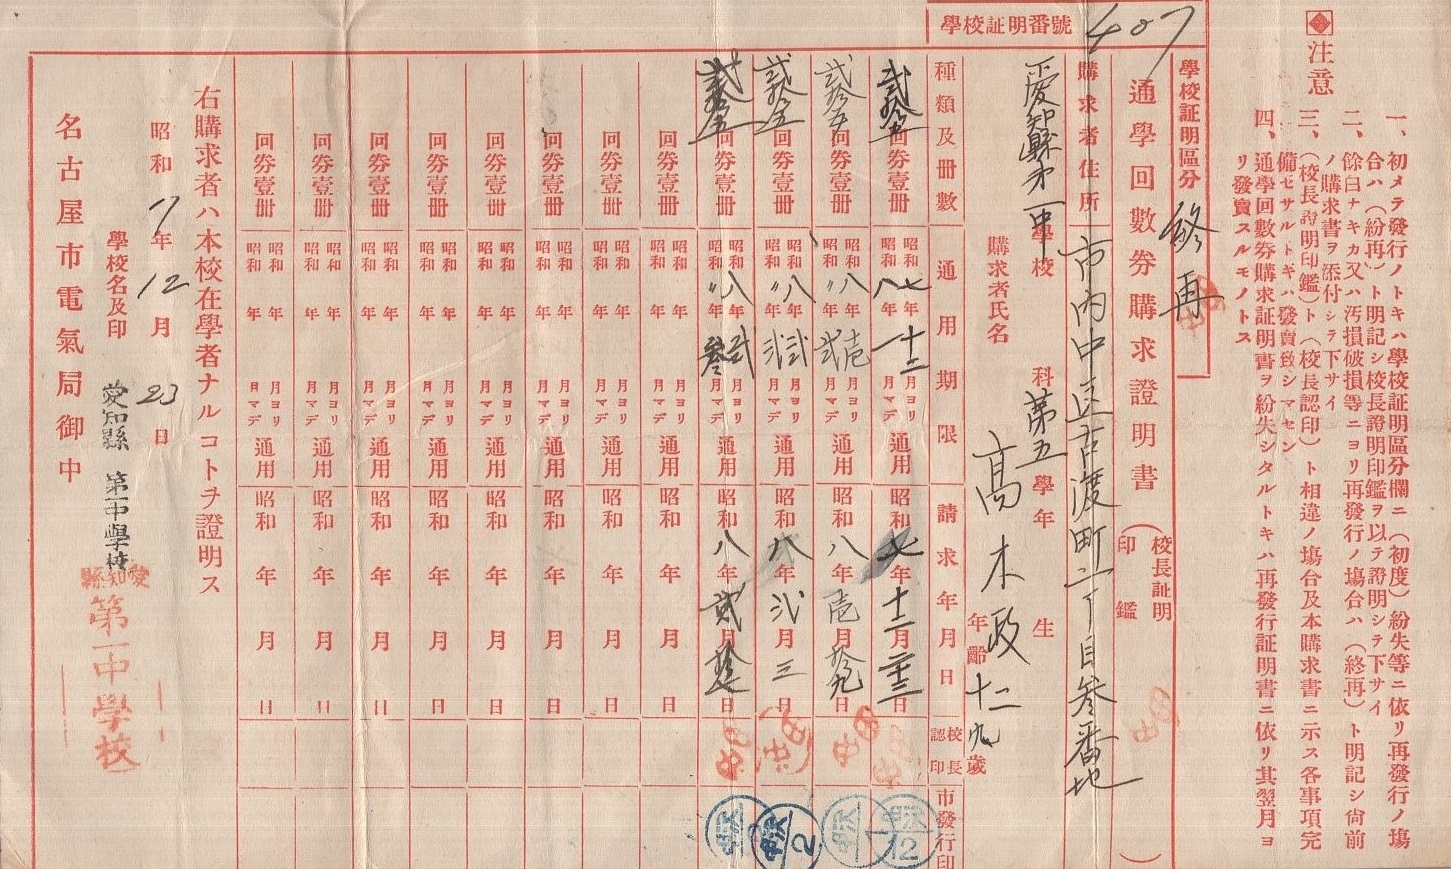 注意
一、初メテ發行ノトキハ學校証明區分欄ニ（初度）紛失等ニ依リ再發行ノ塲
合ハ（紛再）ト明記シ校長證明印鑑ヲ以テ證明シテ下サイ
二、餘白ナキカ又ハ汚損破損等ニヨリ再發行ノ塲合ハ（終再）ト明記シ尙前
ノ購求書ヲ添付シテ下サイ
三、（校長證明印鑑）ト（校長認印）ト相違ノ塲合及本購求書ニ示ス各事項完
備セサルトキハ發賣致シマセン
四、通學回數券購求証明書ヲ紛失シタルトキハ再發行証明書ニ依リ其翌月ヨ
リ發賣スルモノトス
學校証明番號 407
學校証明區分 終再
通學回數券購求證明書（校長証明印鑑）
購求者住所 市內中區古渡町二丁目參番地
愛知縣第一中學校 科第五學年 生
購求者氏名 高木政 年齡十九歲
種類及冊數 通用期限 請求年月日 校長認印 市發行印
回券壹冊 昭和七年十二月ヨリ 昭和八年 月マデ 通用 昭和七年十二月二十三日
回券壹冊 昭和八年壱月ヨリ 昭和〃年弍月マデ 通用 昭和八年壱月 日
回券壹冊 昭和八年弍月ヨリ 昭和〃年 月マデ 通用 昭和八年弍月三日
回券壹冊 昭和八年弍月ヨリ 昭和〃年參月マデ 通用 昭和八年貳月 日
回券壹冊 昭和 年 月ヨリ 昭和 年 月マデ 通用 昭和 年 月 日
回券壹冊 昭和 年 月ヨリ 昭和 年 月マデ 通用 昭和 年 月 日
回券壹冊 昭和 年 月ヨリ 昭和 年 月マデ 通用 昭和 年 月 日
回券壹冊 昭和 年 月ヨリ 昭和 年 月マデ 通用 昭和 年 月 日
回券壹冊 昭和 年 月ヨリ 昭和 年 月マデ 通用 昭和 年 月 日
回券壹冊 昭和 年 月ヨリ 昭和 年 月マデ 通用 昭和 年 月 日
回券壹冊 昭和 年 月ヨリ 昭和 年 月マデ 通用 昭和 年 月 日
回券壹冊 昭和 年 月ヨリ 昭和 年 月マデ 通用 昭和 年 月 日
右購求者ハ本校在學者ナルコトヲ證明ス
昭和7年12月23日
學校名及印 愛知縣第一中學校
愛知縣第一中學校
名古屋市電氣局御中